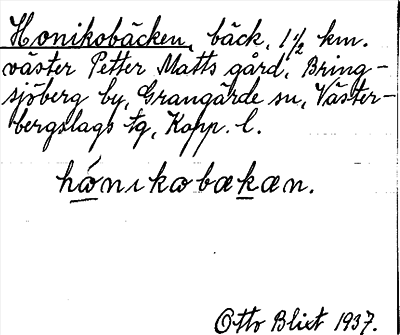 Honikobäcken, bäck, 1½ km.
väster Petter Matts gård, Bring-
sjöberg by, Grangärde sn, Väster-
bergslags tg, Kopp. l.
hónikobækæn.
Otto Blixt 1937.